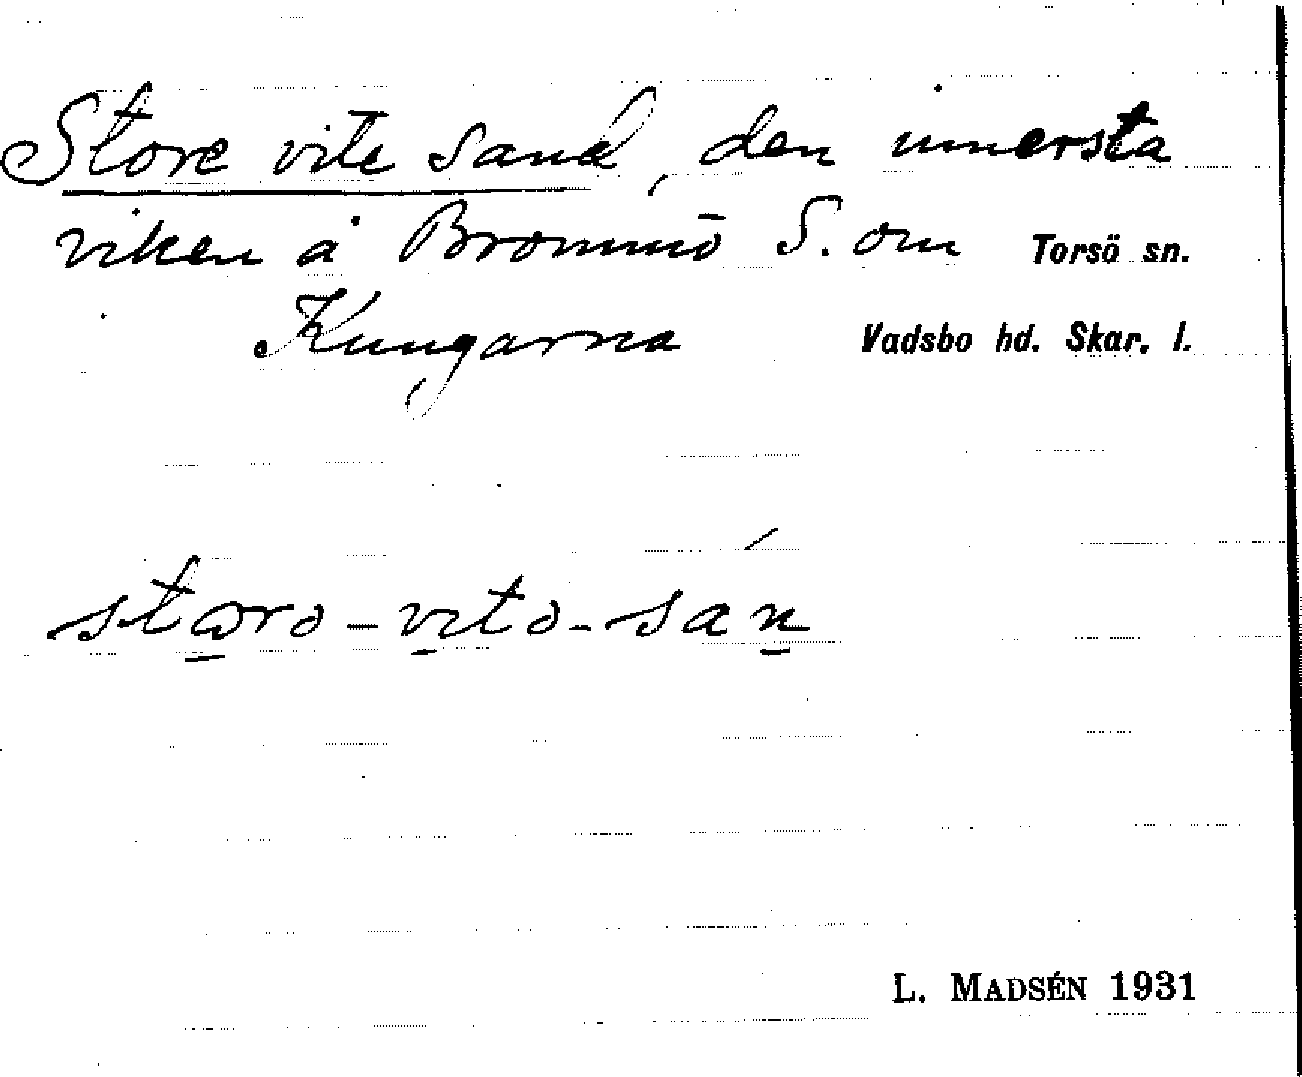 Store vite sand, den innersta
viken å Brommö S. om Torsö sn.
Kungarna Vadsbo hd. Skar. l.
störə-vitə-sán
L. MADSÉN 1931